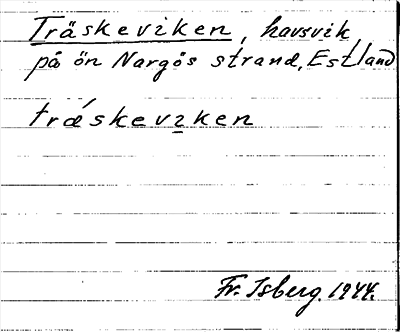 Träskeviken, havsvik
på ön Nargös strand, Estland
trǽskevıken
Fr. Isberg. 1944.